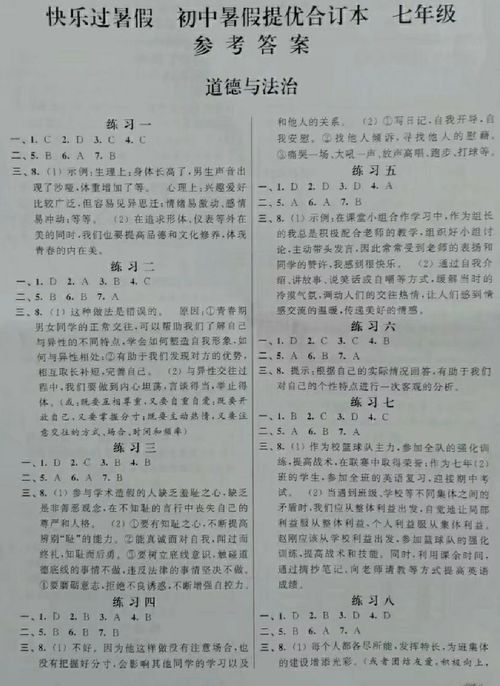 快乐过暑假 初中暑假提优合订本 七年级
参考答案
道德与法治
练习一
一、1. C 2. D 3. C 4. C
二、5. B 6. A 7. B
三、8. (1) 示例:生理上:身体长高了,男生声音出
现了沙哑,体重增加了等。 心理上:兴趣爱好
比较广泛,但容易见异思迁;情绪易激动、感情
易冲动;等等。 (2) 在追求形体、仪表等外在
美的同时,我们也要提高品德和文化修养,体现
青春的内在美。
练习二
一、1. D 2. C 3. B 4. B
二、5. B 6. B 7. A
三、8. (1) 这种做法是错误的。 原因:①青春期
男女同学的正常交往,可以帮助我们了解自己
与异性的不同特点,学会如何塑造自我形象,如
何与异性相处;②有助于我们发现对方的优势,
相互取长补短,完善自己。 (2) 与异性交往过
程中,我们要做到内心坦荡,言谈得当,举止得
体。(或:既要互相尊重,又要自重自爱;既要开
放自己,又要掌握分寸;既要主动热情,又要注
意交往的方式、场合、时间和频率)
练习三
一、1. D 2. C 3. A 4. B
二、5. B 6. A 7. B
三、8. (1) 参与学术造假的人缺乏羞耻之心,缺乏
是非善恶观念,在不知耻的言行中丧失自己的
尊严和人格。 (2) ①要有知耻之心,不断提高
辨别“耻”的能力。②能真诚面对自我,闻过而
终礼,知耻而后勇。③要树立底线意识,触碰道
德底线的事情不做,违反法律的事情坚决不做。
④要磨砺意志,拒绝不良诱惑,不断增强自控力。
练习四
一、1. D 2. B 3. A 4. D
二、5. B 6. B 7. A
三、8. (1) 不好。因为他这样做没有注意场合,也
没有把握好分寸,会影响其他同学的学习以及
和他人的关系。 (2) ①写日记,自我开导,自
我安慰。②找他人倾诉,寻找他人的慰藉。
③痛哭一场、大吼一声、放声高唱、跑步、打球等。
练习五
一、1. D 2. D 3. D 4. A
二、5. B 6. B 7. A
三、8. (1) 示例:在课堂小组合作学习中,作为组长
的我总是积极配合老师的教学,组织好小组讨
论,主动带头发言,因此常常受到老师的表扬和
同学的赞许,我感到很快乐。 (2) 通过自我介
绍、讲故事、说笑话或自嘲等方式,缓解当时的
冷漠气氛,两动人们的交往热情,让人们感到情
感交流的温暖,传递美好的情感。
练习六
一、1. D 2. B 3. D 4. B
二、5. A 6. B 7. B
三、8. 提示:根据自己的实际情况回答,有助于我们
对自己的个性特点进行一次客观的分析。
练习七
一、1. B 2. C 3. D 4. C
二、5. A 6. B 7. A
三、8. (1) 作为校篮球队主力,参加全队的强化训
练,提高战术,在联赛中取得荣誉;作为七年(2)
班的学生,参加全班的英语复习,迎接期中考
试。 (2) 当遇到班级、学校等不同集体之间的
矛盾时,我们应从整体利益出发,自觉地让局部
利益服从整体利益,个人利益服从集体利益。
赵刚应该从学校利益出发,参加篮球队的强化
训练,提高战术和技能。同时,利用课余时间,
通过摘抄笔记、向老师请教等方式提高英语
成绩。
练习八
一、1. D 2. D 3. C 4. D
二、5. B 6. A 7. A
三、8. (1) 每个人都各尽所能,发挥特长,为班集体
的建设增添光彩。(或者团结友爱,积极向上,